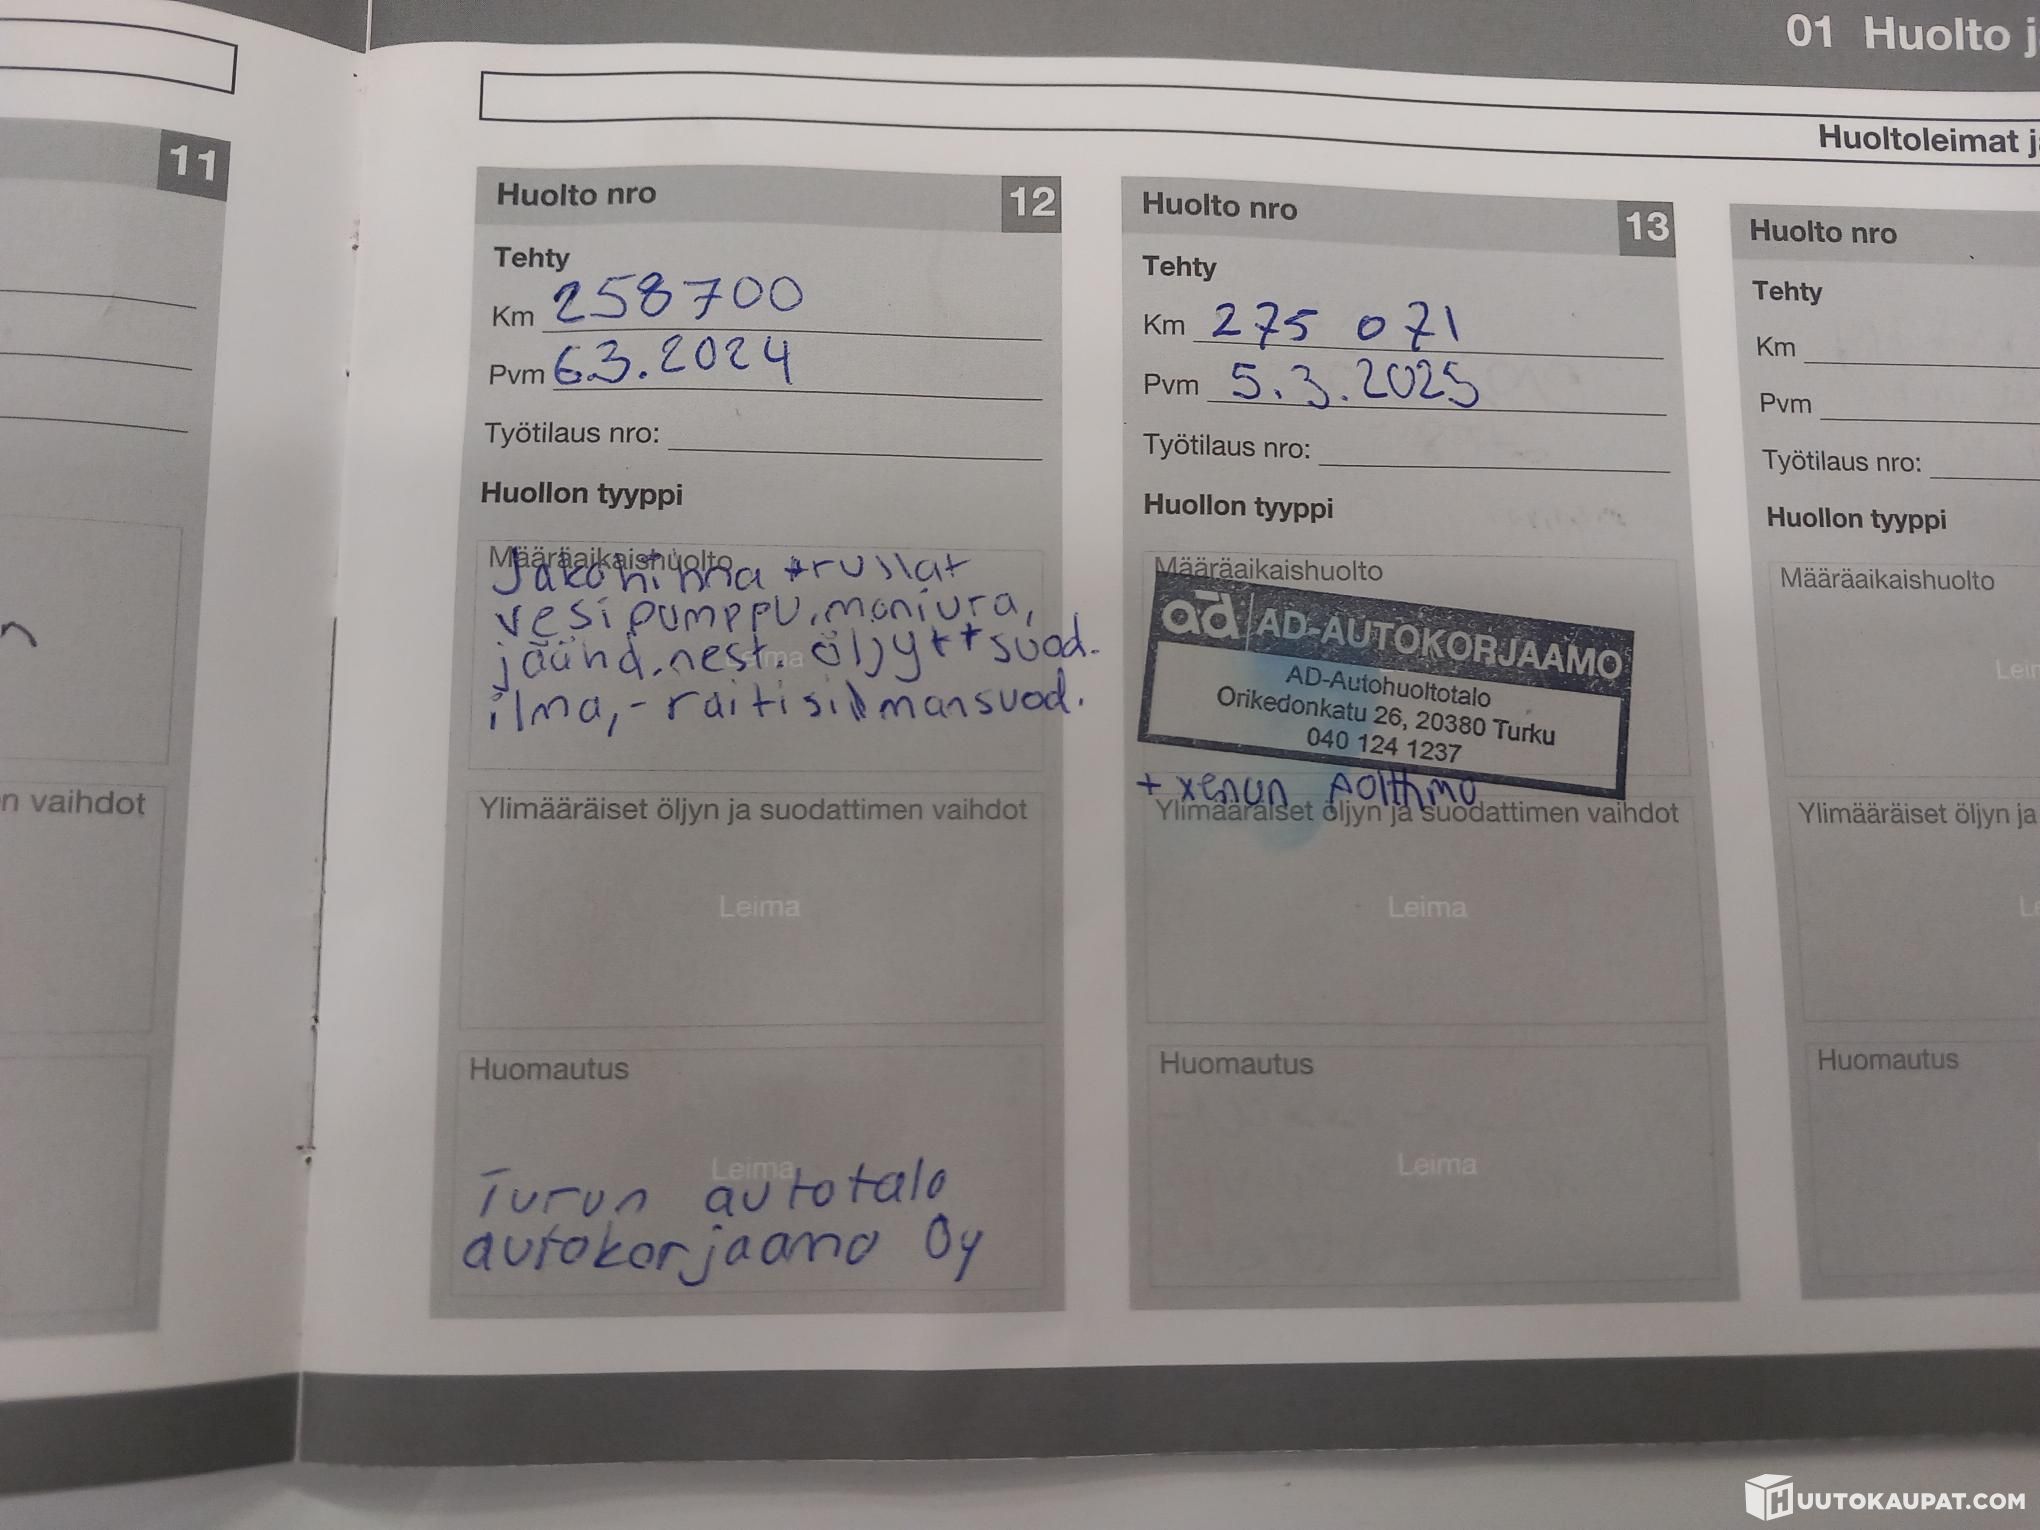 01 Huolto j
Huoltoleimat j
11
n vaihdot
Huolto nro 12
Tehty
Km 258700
Pvm 6.3.2024
Työtilaus nro:
Huollon tyyppi
Määräaikaishuolto
Jakohihna + rullat
vesipumppu, moniura,
jäähd.nest. öljyt + suod.
ilma,- raitisilmansuod.
Leima
Ylimääräiset öljyn ja suodattimen vaihdot
Leima
Huomautus
Leima
Turun autotalo
autokorjaamo Oy
Huolto nro 13
Tehty
Km 275 071
Pvm 5.3.2025
Työtilaus nro:
Huollon tyyppi
Määräaikaishuolto
ad AD-AUTOKORJAAMO
AD-Autohuoltotalo
Orikedonkatu 26, 20380 Turku
040 124 1237
+ xenun polttimo
Ylimääräiset öljyn ja suodattimen vaihdot
Leima
Huomautus
Leima
Huolto nro
Tehty
Km
Pvm
Työtilaus nro:
Huollon tyyppi
Määräaikaishuolto
Leim
Ylimääräiset öljyn ja
Le
Huomautus
HUUTOKAUPAT.COM